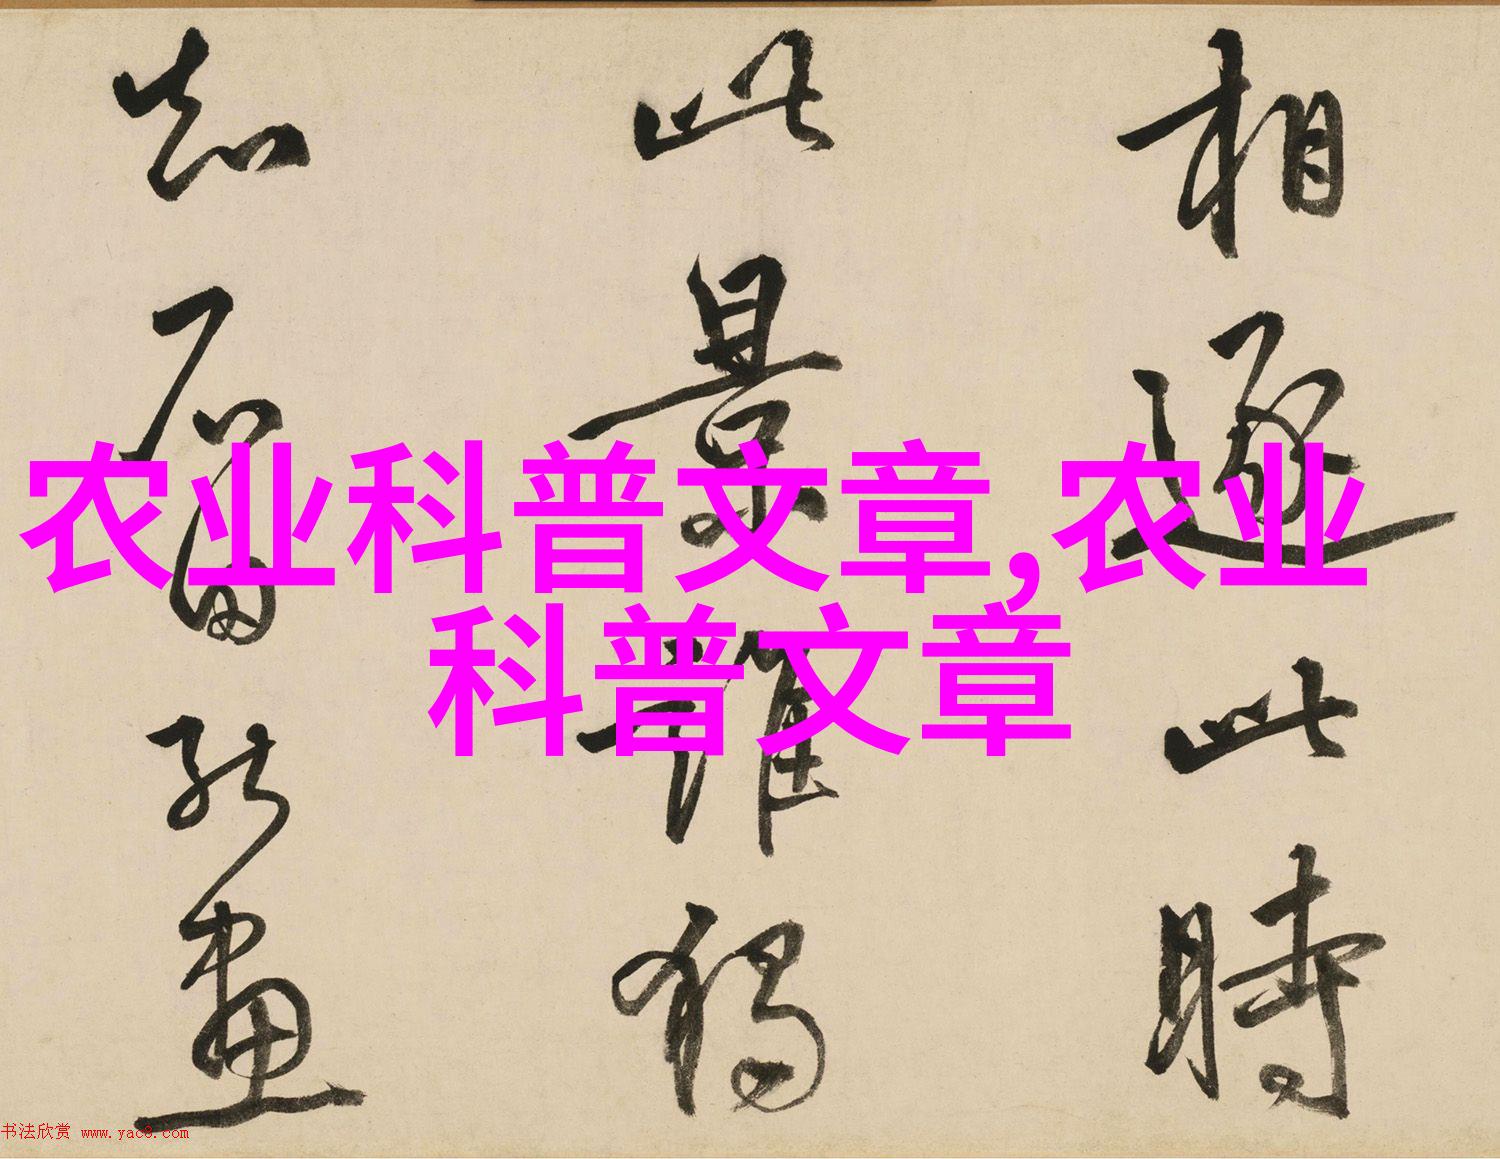 相逐此時
此景誰獨
知石田能畫
农业科普文章,农业
科普文章
书法欣赏 www.yac8.com